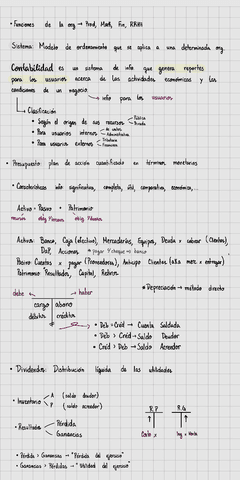 • Funciones de la org → Prod, Mark, Fin, RRHH
Sistema: Modelo de ordenamiento que se aplica a una determinada org.
Contabilidad es un sistema de info que genera reportes
para los usuarios acerca de las actividades económicas y las
condiciones de un negocio.
→ info para los usuarios
→ Clasificación
• Según el origen de sus recursos Pública Privada
• Para usuarios internos De costos Administrativa
• Para usuarios externos Tributaria Financiera
• Presupuesto: plan de acción cuantificado en términos monetarios
• Características: info significativa, completa, útil, comparativa, económica,...
Activo = Pasivo + Patrimonio
Activos: Banco, Caja (efectivo), Mercaderías, Equipos, Deuda x cobrar (Clientes),
DxC, Acciones
Pasivo: Cuentas x pagar (Proveedores), Anticipo Clientes (aka merc x entregar)
Patrimonio: Resultados, Capital, Retiros
• Depreciación → método directo
debe haber
cargo abono
débitos créditos
• Deb = Créd → Cuenta Saldada
• Deb > Créd → Saldo Deudor
• Créd > Deb → Saldo Acreedor
• Dividendos: Distribución líquida de las utilidades
• Inventario A (saldo deudor)
P (saldo acreedor)
• Resultados Pérdida
Ganancias
R.P R.G
Costo x Ing x Venta
• Pérdida > Ganancias → "Pérdida del ejercicio"
• Ganancias > Pérdidas → "Utilidad del ejercicio"